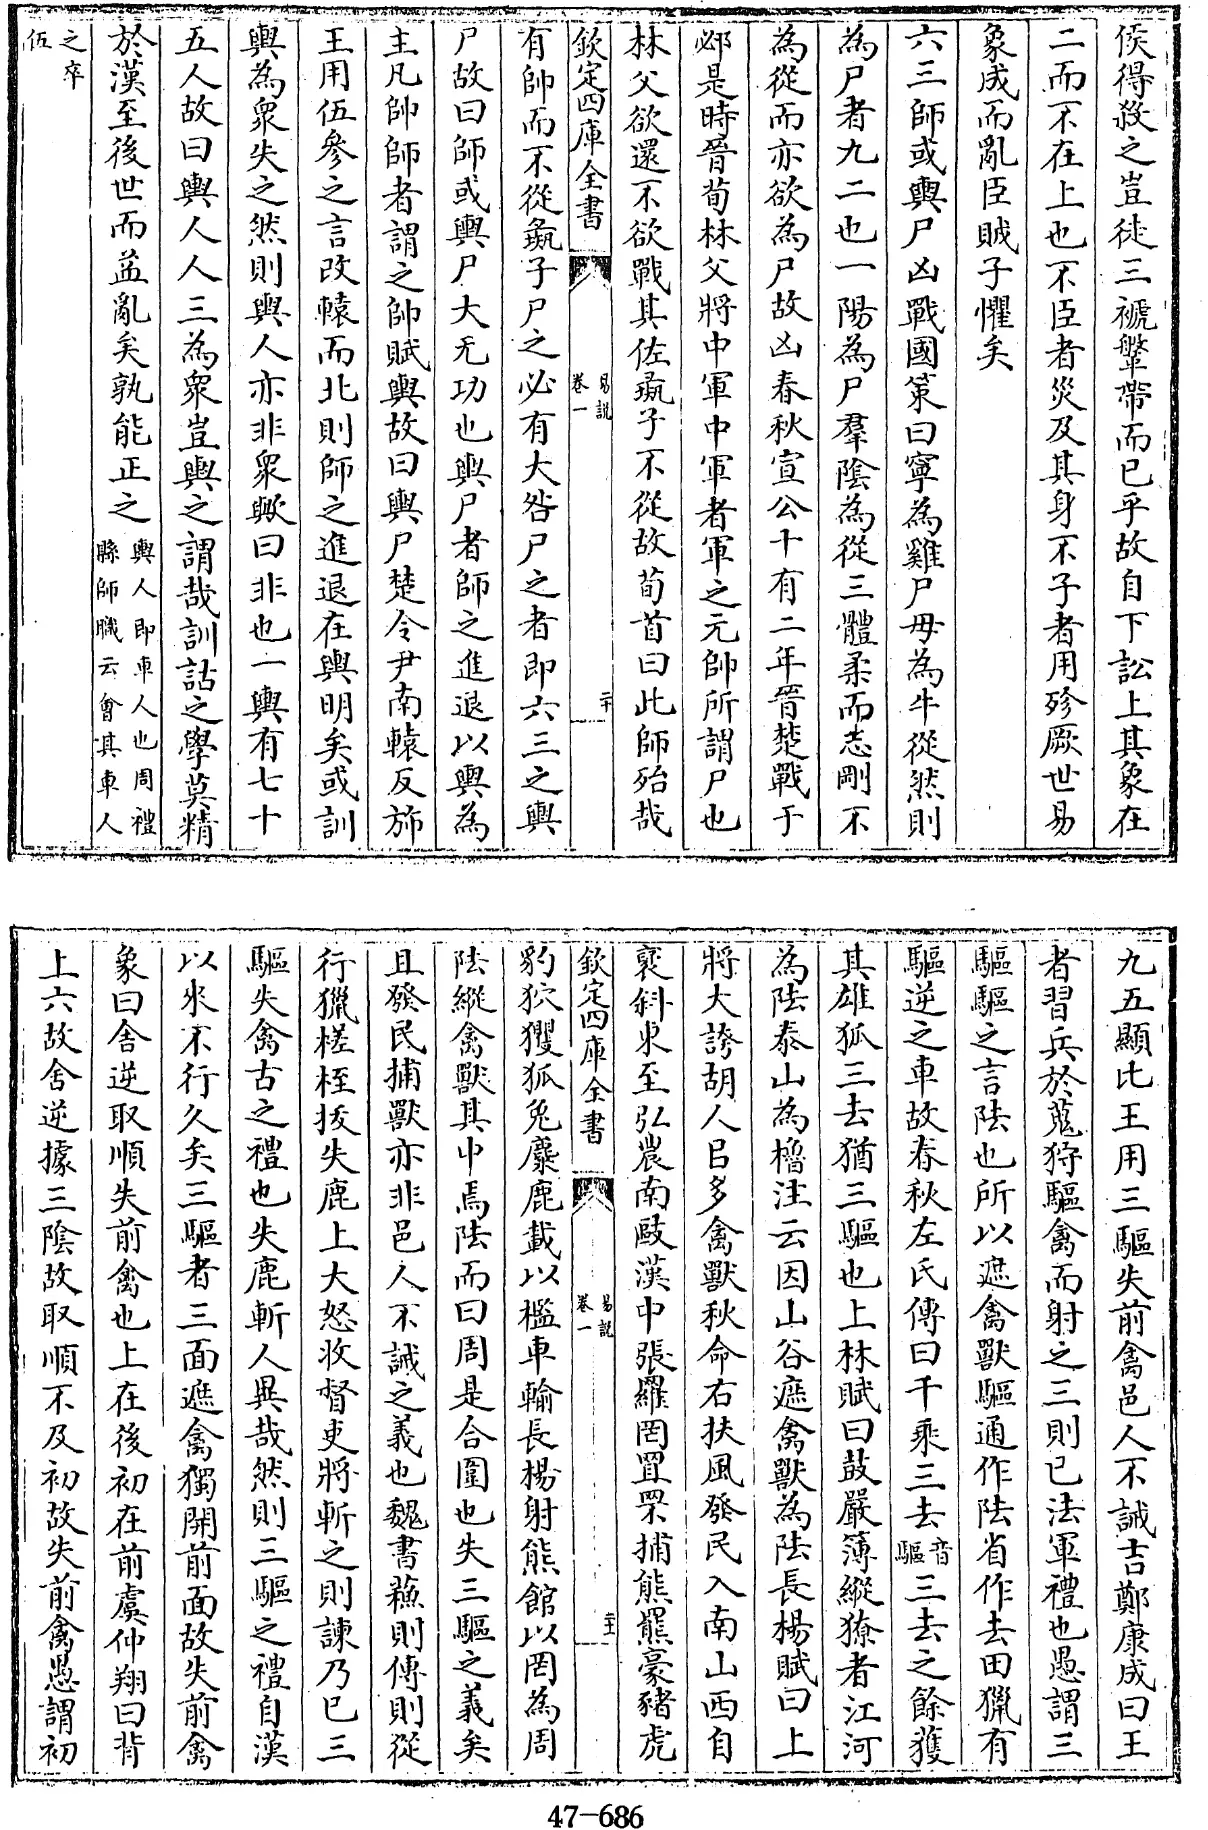 侯得殺之豈徒三褫鞶帶而已乎故自下訟上其象在
二而不在上也不臣者災及其身不子者用殄厥世易
象成而亂臣賊子懼矣
六三師或輿尸凶戰國策曰寧為雞尸毋為牛從然則
為尸者九二也一陽為尸羣陰為從三體柔而志剛不
為從而亦欲為尸故凶春秋宣公十有二年晉楚戰于
邲是時晉荀林父將中軍中軍者軍之元帥所謂尸也
林父欲還不欲戰其佐彘子不從故荀首曰此師殆哉
欽定四庫全書
易說
卷一
二十
有帥而不從彘子尸之必有大咎尸之者即六三之輿
尸故曰師或輿尸大无功也輿尸者師之進退以輿為
主凡帥師者謂之帥賦輿故曰輿尸楚令尹南轅反旆
王用伍參之言改轅而北則師之進退在輿明矣或訓
輿為衆失之然則輿人亦非衆歟曰非也一輿有七十
五人故曰輿人人三為衆豈輿之謂哉訓詁之學莫精
於漢至後世而益亂矣孰能正之
輿人即車人也周禮
縣師職云會其車人
之卒
伍
九五顯比王用三驅失前禽邑人不誡吉鄭康成曰王
者習兵於蒐狩驅禽而射之三則已法軍禮也愚謂三
驅驅之言阹也所以遮禽獸驅通作阹省作去田獵有
驅逆之車故春秋左氏傳曰千乘三去
音
驅
三去之餘獲
其雄狐三去猶三驅也上林賦曰鼓嚴簿縱獠者江河
為阹泰山為櫓注云因山谷遮禽獸為阹長楊賦曰上
將大誇胡人㠯多禽獸秋命右扶風發民入南山西自
褒斜東至弘農南敺漢中張羅罔罝罘捕熊羆豪豬虎
欽定四庫全書
易說
卷一
二十一
豹狖玃狐兔麋鹿載以檻車輸長楊射熊館以罔為周
阹縱禽獸其中焉阹而曰周是合圍也失三驅之義矣
且發民捕獸亦非邑人不誡之義也魏書蘇則傳則從
行獵槎桎拔失鹿上大怒收督吏將斬之則諫乃已三
驅失禽古之禮也失鹿斬人異哉然則三驅之禮自漢
以來不行久矣三驅者三面遮禽獨開前面故失前禽
象曰舍逆取順失前禽也上在後初在前虞仲翔曰背
上六故舍逆據三陰故取順不及初故失前禽愚謂初
47-686